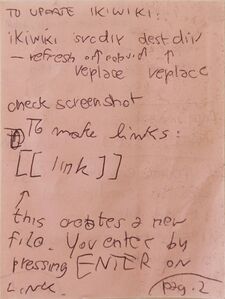 TO UPDATE IKIWIKI:
ikiwiki srcdir destdir
– refresh or
replace replace
check screenshot
To make links:
[[ link ]]
this creates a new
file. You enter by
pressing ENTER on
LINK.
pag. 2